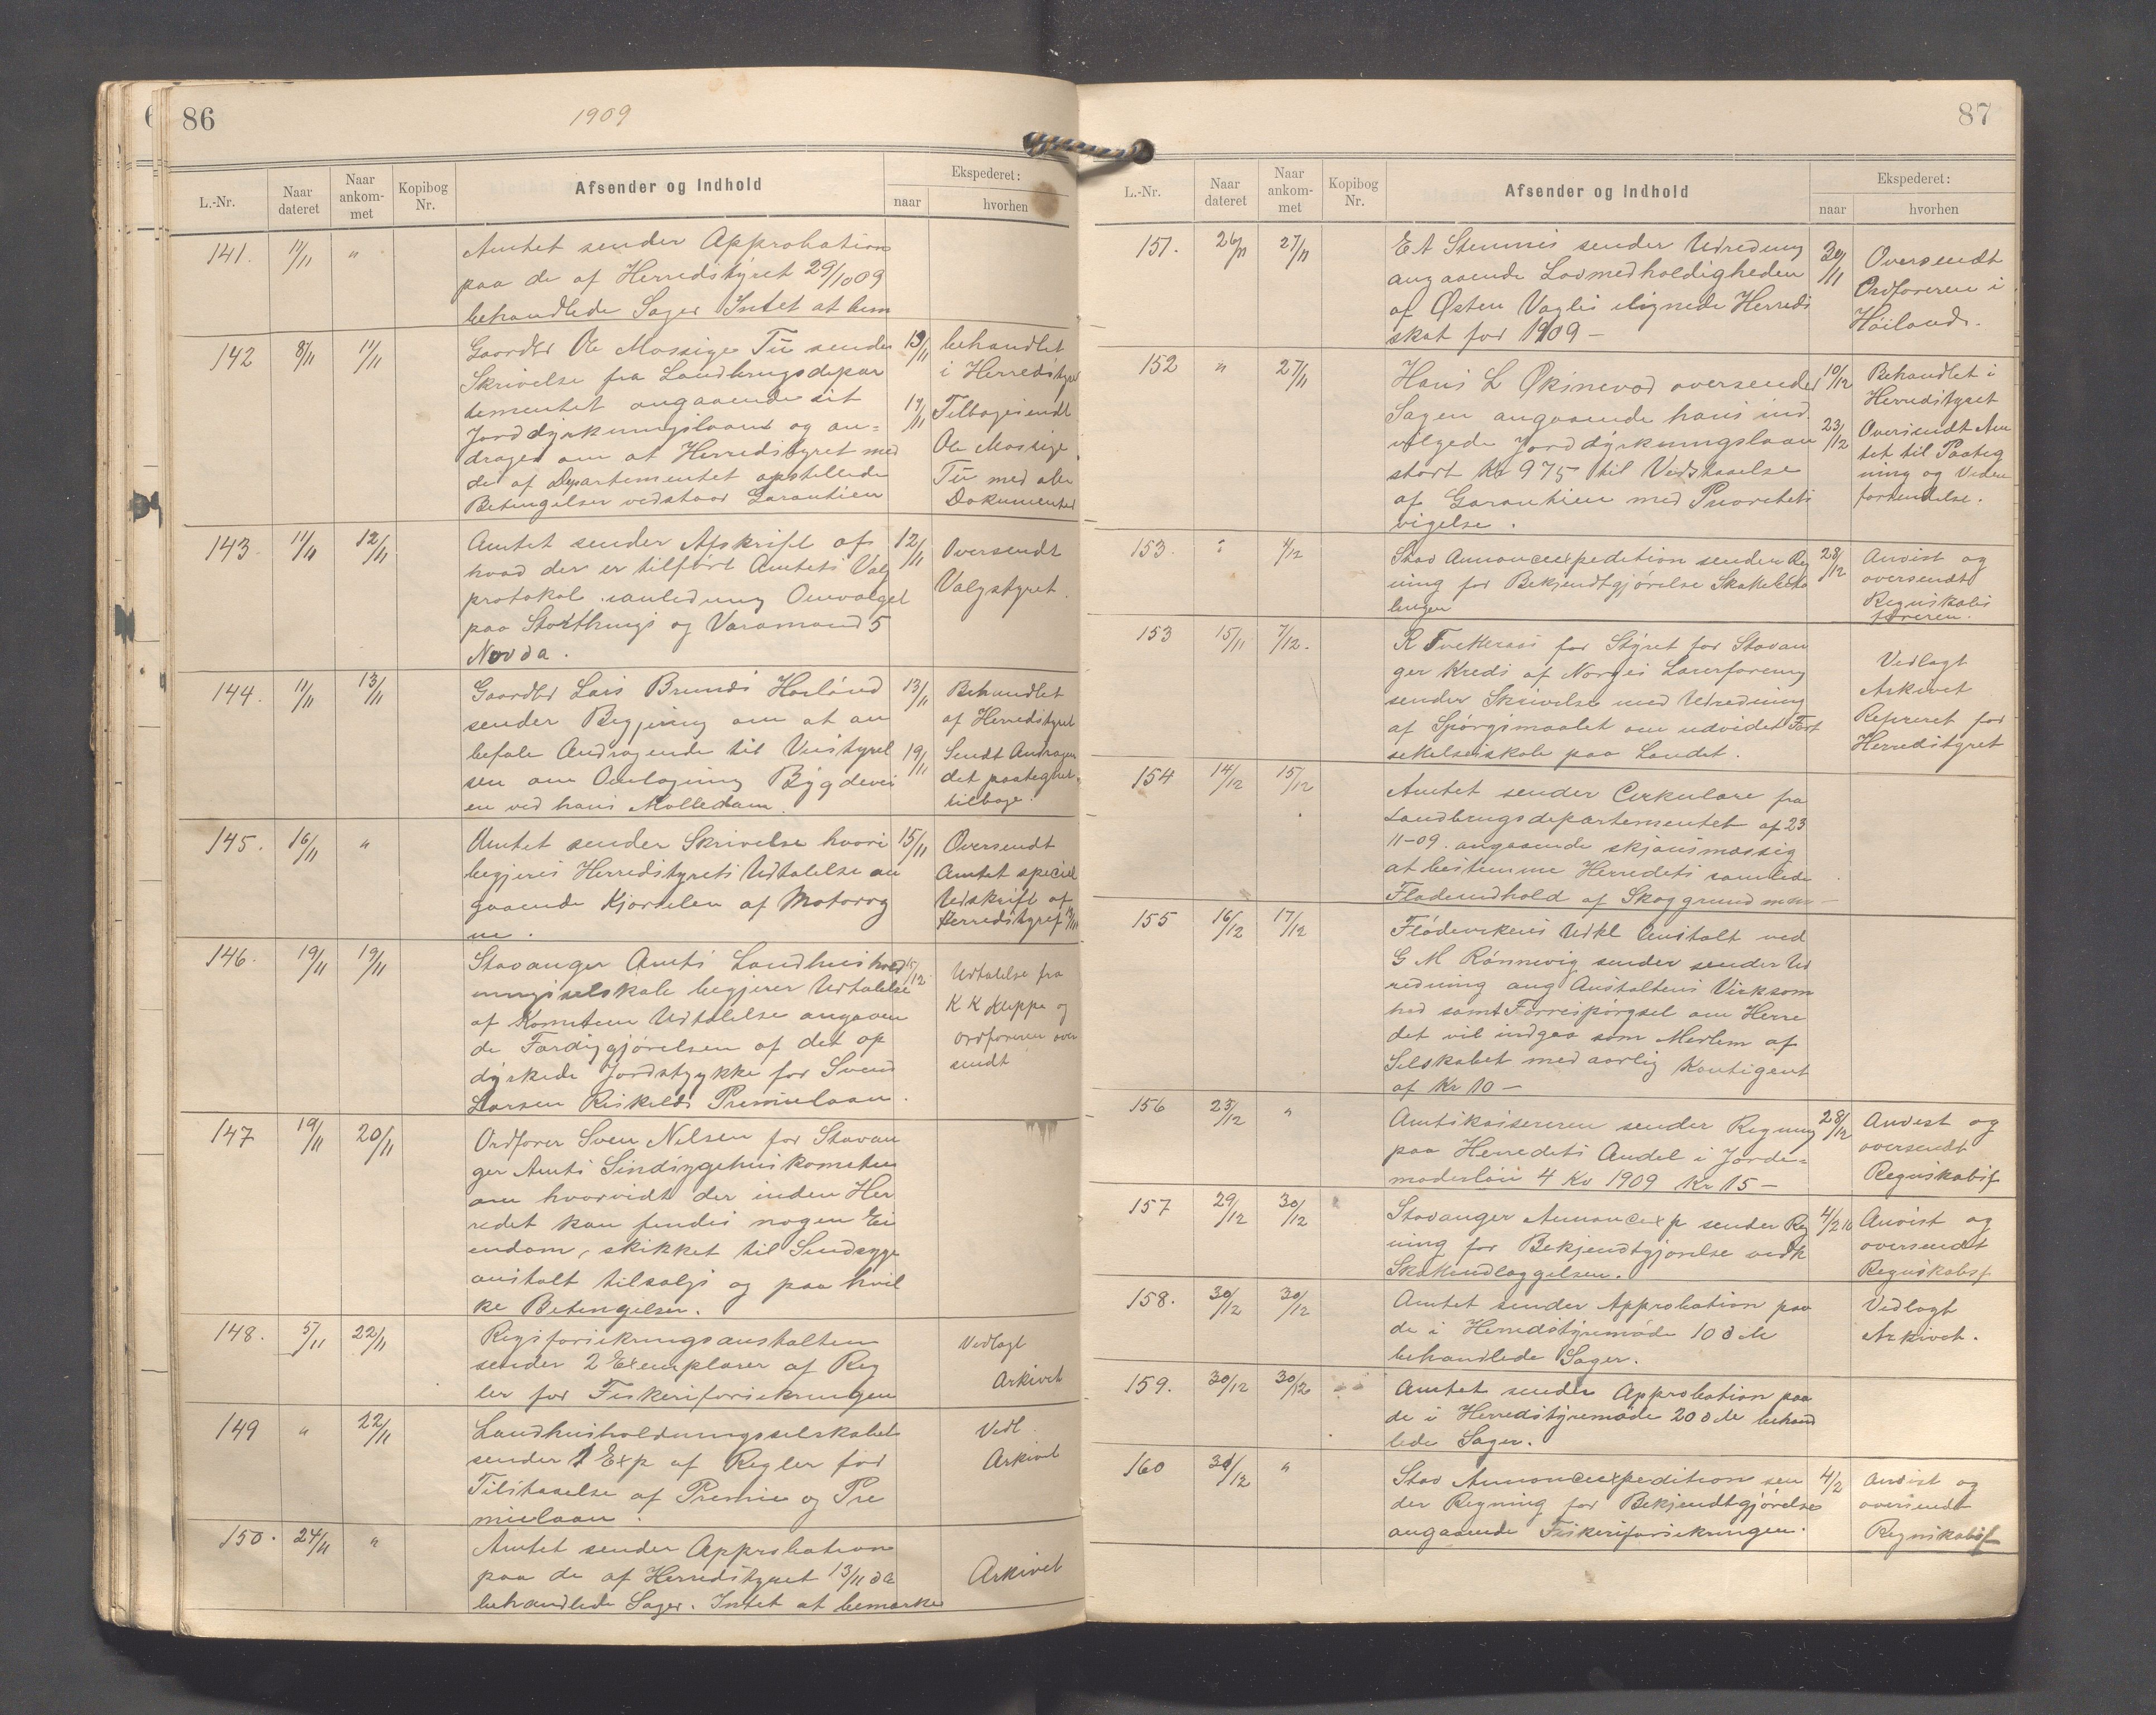 86
1909
L.-Nr.
Naar dateret
Naar ankom-met
Kopibog Nr.
Afsender og Indhold
Ekspederet:
naar
hvorhen
141. 11/11 "
Amtet sender Approbation
paa de af Herredstyret 29/10 09
behandlede Sager Intet at bem
142 8/11 11/11
Gaardbr Ole Mossige Tu sender
Skrivelse fra Landbrugsdepar
tementet angaaende sit
Jorddyrkningslaan og an=
drager om at Herredstyret med
de af Departementet opstillede
Betingelser vedstaar Garantien
13/11 behandlet
i Herredstyret
17/11 Tilbagesendt
Ole Mossige
Tu med alle
Dokumenter
143. 11/11 12/11
Amtet sender Afskrift af
hvad der er tilført Amtets Valg
protokol i anledning Omvalget
paa Storthings og Varamand 5
Nov da.
12/11 Oversendt
Valgstyret.
144. 11/11 13/11
Gaardbr Lars Bruns Høiland
sender Begjæring om at an
befale Andragende til Veistyrel
sen om Omlægning Bygdevei
en ved hans Mølledam.
13/11 Behandlet
af Herredstyret
19/11 Sendt Andragen
det paategnet
tilbage.
145. 16/11 "
Amtet sender Skrivelse hvori
begjeres Herredstyrets Udtalelse an
gaaende Kjørselen af Motorvog
ne.
15/11 Oversendt
Amtet speciel
Udskrift af
Herredstyret 13/11
146. 19/11 19/11
Stavanger Amts Landhushold
ningsselskab begjerer Udtalelse
af Komiteen Udtalelse angaaen
de Færdiggjørelsen af det op
dyrkede Jordstykke for Svend
Larsen Riskeldr Premielaan.
15/12 Udtalelse fra
K K Kleppe og
Ordføreren over
sendt
147 19/11 20/11
Ordfører Sven Nilsen for Stavan
ger Amts Sindsygehuskomiteen
om hvorvidt der inden Her
redet kan findes nogen Ei
endom, skikket til Sindsyge
anstalt tilsalgs og paa hvil
ke Betingelser.
148. 5/11 22/11
Rigsforsikringsanstalten
sender 2 Exemplarer af Reg
ler for Fiskeriforsikringen
Vedlagt
Arkivet
149 " 22/11
Landhusholdningsselskabet
sender 1 Exp af Regler for
Tilstaaelse af Premie og Pre
mielaan.
Vedl.
Arkivet
150. 24/11 "
Amtet sender Approbation
paa de af Herredstyret 13/11 da
behandlede Sager. Intet at bemærke
Arkivet
87
L.-Nr.
Naar dateret
Naar ankom-met
Kopibog Nr.
Afsender og Indhold
Ekspederet:
naar
hvorhen
151. 26/11 27/11
E A Stennes sender Udredning
angaaende Lovmedholdigheden
af Østen Vagles ilignede Herreds
skat for 1909 –
30/11 Oversendt
Ordføreren i
Høilands.
152 " 27/11
Hans L Øksnevad oversender
Sagen angaaende hans ind
vilgede Jorddyrkningslaan
stort Kr 975 til Vedstaaelse
af Garantien med Prioritets
vigelse.
10/12 Behandlet i
Herredstyret
23/12 Oversendt Am
tet til Paateg
ning og Videre
forsendelse.
153. " 4/12
Stav Annonceexpedition sender Reg
ning for Bekjendtgjørelse Skattebeta
lingen
28/12 Anvist og
oversendt
Regnskabs
føreren.
153 15/11 7/12.
R Tveteraas for Styret for Stavan
ger Kreds af Norges Lærerforening
sender Skrivelse med Udredning
af Spørgsmaalet om udvidet Fort
settelsesskole paa Landet.
Vedlagt
Arkivet
Refereret for
Herredstyret
154 14/12 15/12
Amtet sender Cirkulære fra
Landbrugsdepartementet af 23
11-09. angaaende skjønsmæssig
at bestemme Herredets samlede
Fladeindhold af Skoggrund m m –
155 16/12 17/12
Flødevikens Udkl Anstalt ved
G M Rønnevig sender sender Ud
redning ang Anstaltens Virksom
hed samt Forrespørgsel om Herre
det vil indgaa som Medlem af
Selskabet med aarlig Kontigent
af Kr 10 –
156 23/12 "
Amtskasiereren sender Regning
paa Herredets Andel i Jorde=
moderløn 4 Kv 1909 Kr 15 –
28/12 Anvist og
oversendt
Regnskabsf
157 29/12 30/12
Stavanger Annoncexp sender Reg
ning for Bekjendtgjørelse vedk
Skatteudlæggelsen.
4/2 10 Anvist og
oversendt
Regnskabsf
158. 30/12 30/12
Amtet sender Approbation paa
de i Herredstyremøde 10 d M
behandlede Sager.
Vedlagt
Arkivet.
159. 30/12 30/12
Amtet sender Approbation paa
de i Herredstyremøde 20 d M behand
lede Sager.
160 30/12 "
Stav Annonceexpedition sen
der Regning for Bekjendtgjørelse
angaaende Fiskeriforsikringen.
4/2 Anvist og
oversendt
Regnskabsf